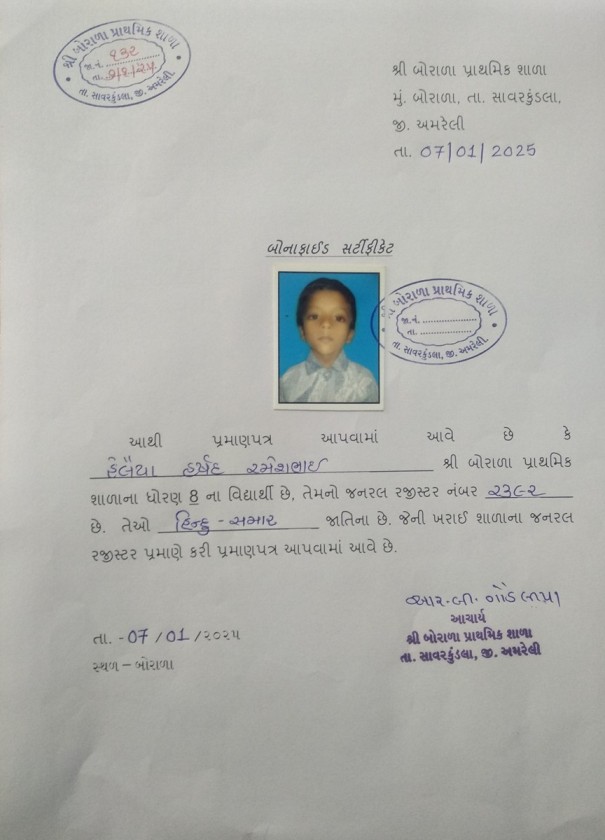 શ્રી બોરાળા પ્રાથમિક શાળા
જા.નં. ૨૩૨
તા. ૭/૧/૨૫
તા. સાવરકુંડલા, જી. અમરેલી.
શ્રી બોરાળા પ્રાથમિક શાળા
મું. બોરાળા, તા. સાવરકુંડલા,
જી. અમરેલી
તા. 07/01/2025
બોનાફાઈડ સર્ટીફીકેટ
શ્રી બોરાળા પ્રાથમિક શાળા
જા.નં. ....................
તા. ....................
તા. સાવરકુંડલા, જી. અમરેલી.
આથી પ્રમાણપત્ર આપવામાં આવે છે કે
હેલૈયા હર્ષદ રમેશભાઈ શ્રી બોરાળા પ્રાથમિક
શાળાના ધોરણ 8 ના વિદ્યાર્થી છે, તેમનો જનરલ રજીસ્ટર નંબર ૨૩૯૨
છે. તેઓ હિન્દુ - જાતિના છે. જેની ખરાઈ શાળાના જનરલ
રજીસ્ટર પ્રમાણે કરી પ્રમાણપત્ર આપવામાં આવે છે.
આર.બી.
આચાર્ય
શ્રી બોરાળા પ્રાથમિક શાળા
તા. સાવરકુંડલા, જી. અમરેલી
તા. -07/01/૨૦૨૫
સ્થળ – બોરાળા